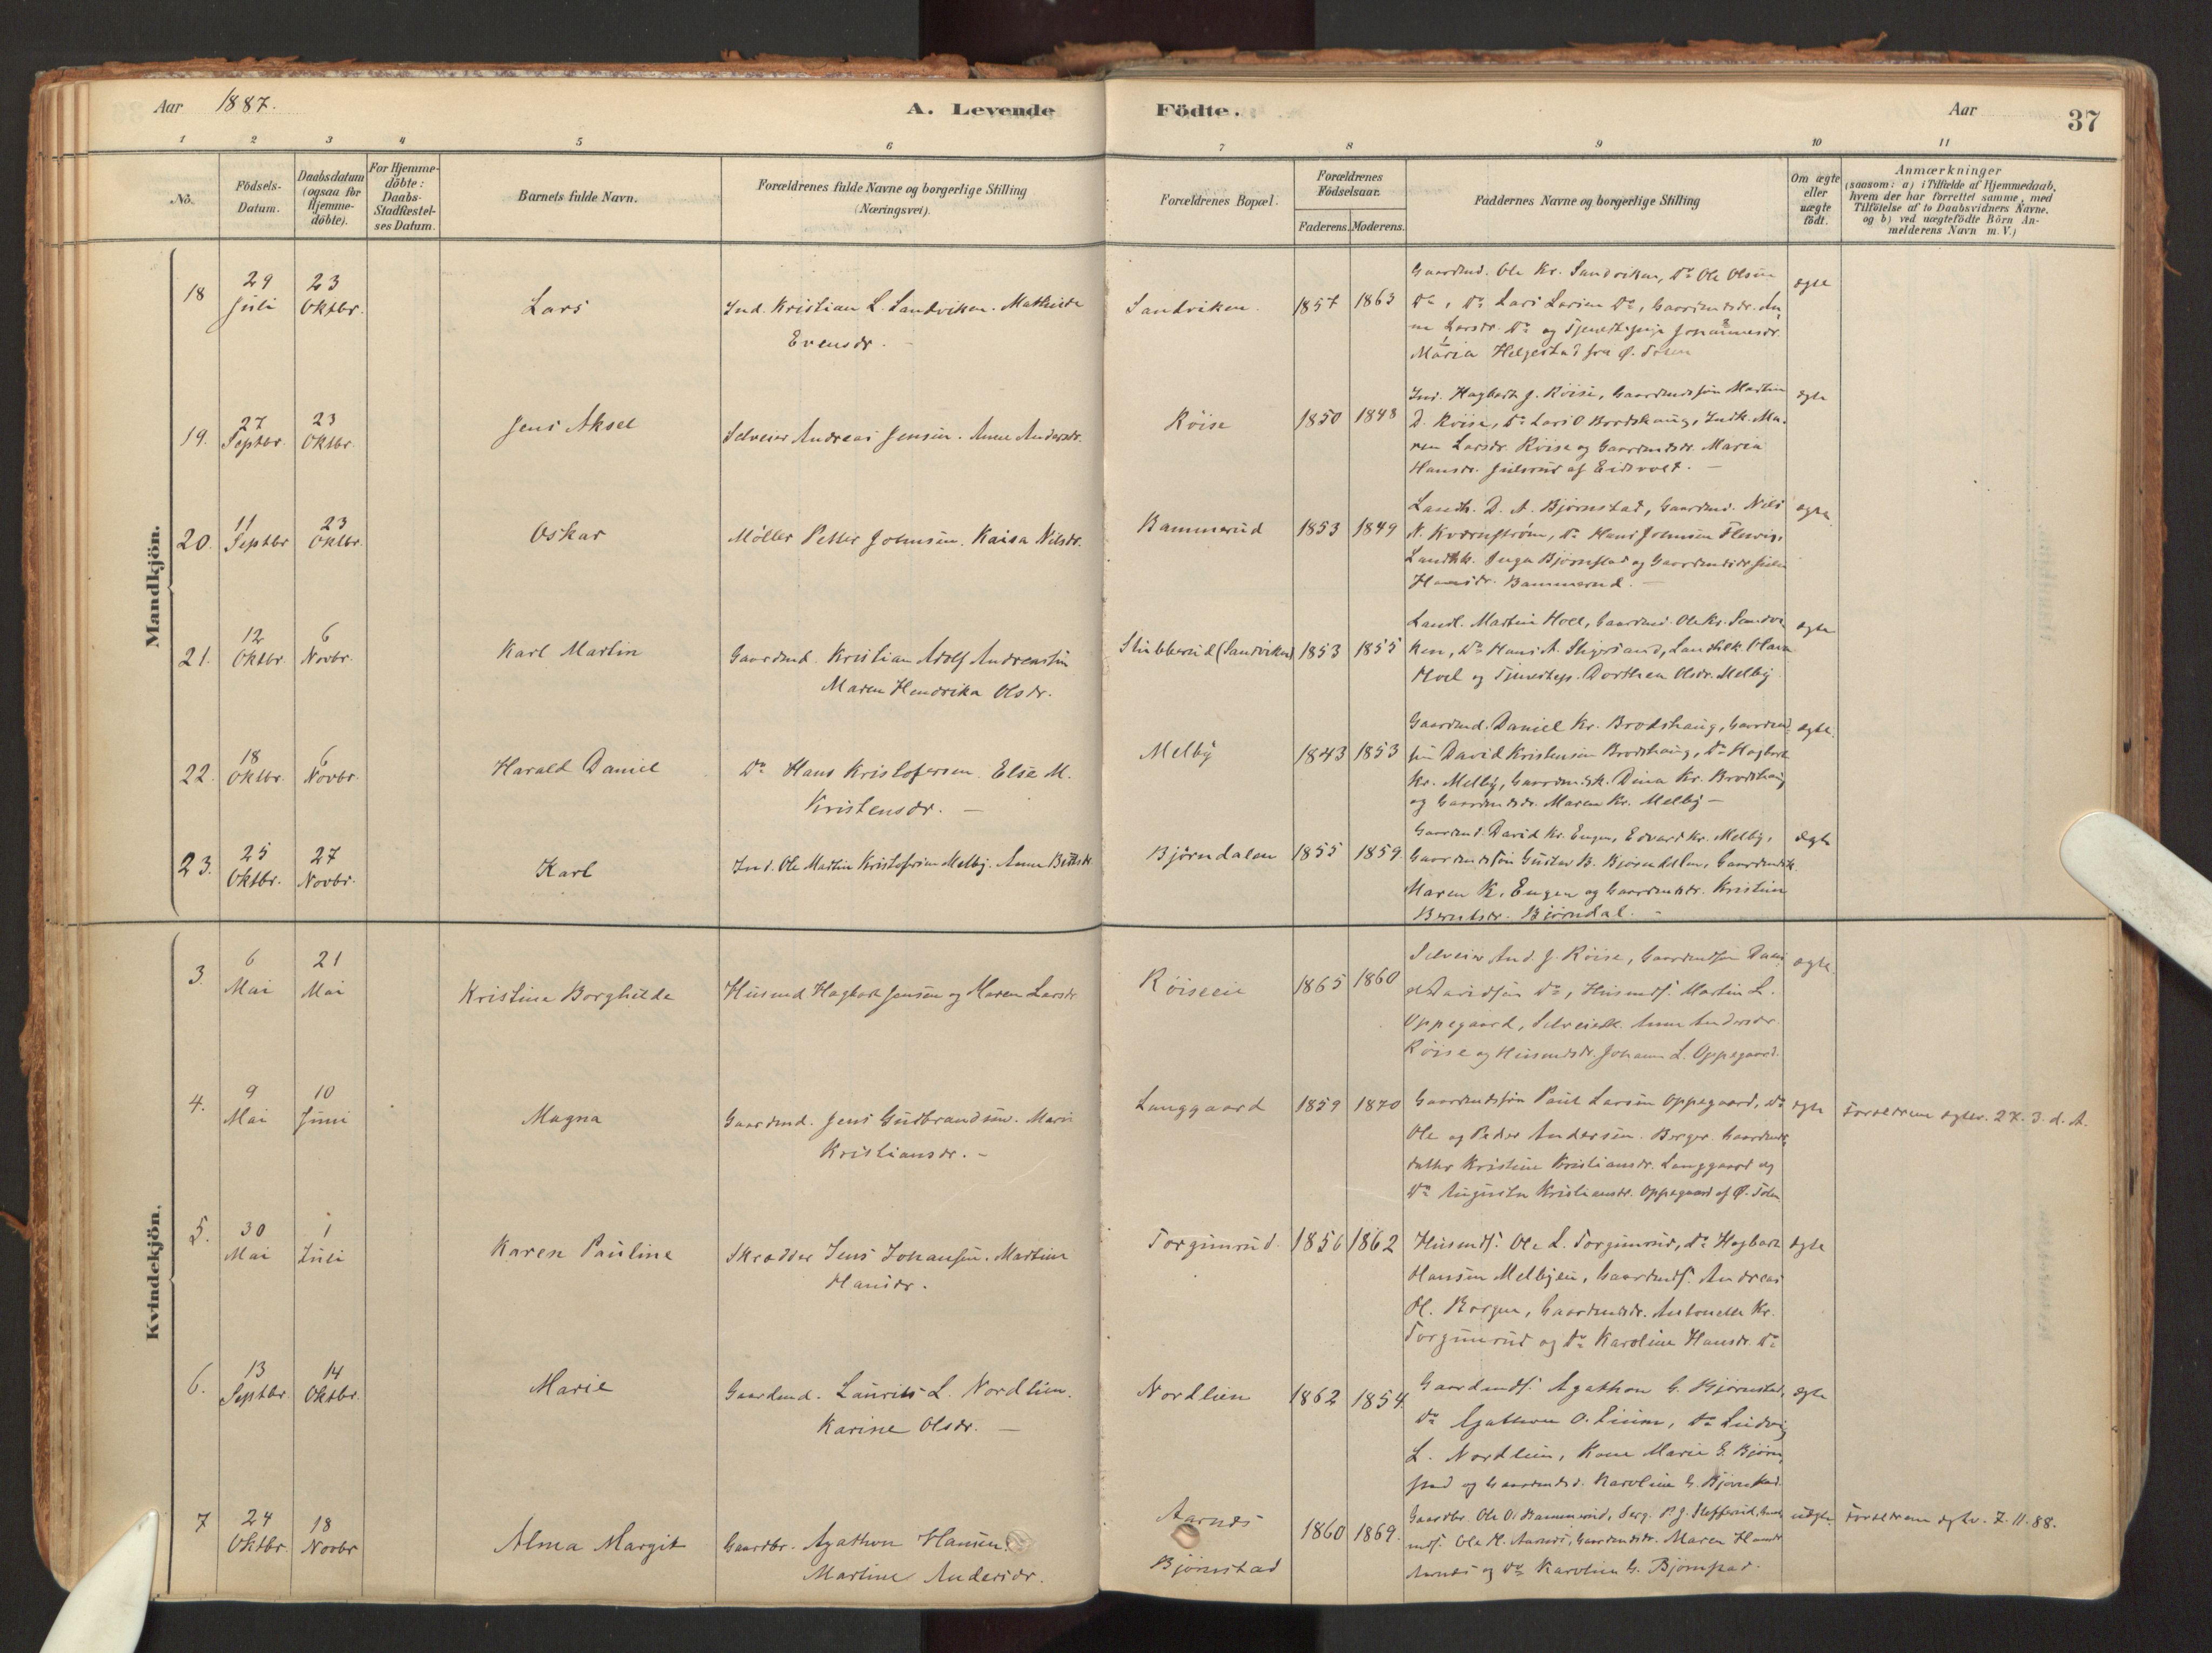 Aar 1887.
A. Levende Födte.
Aar
37
1 2 3 4 5 6 7 8 9 10 11
No.
Födsels-Datum.
Daabsdatum (ogsaa for Hjemme-döbte).
For Hjemme-döbte: Daabs-Stadfæstel-ses Datum.
Barnets fulde Navn.
Forældrenes fulde Navne og borgerlige Stilling (Næringsvei).
Forældrenes Bopæl.
Forældrenes Födselsaar.
Faderens. Moderens.
Faddernes Navne og borgerlige Stilling
Om ægte eller uægte födt.
Anmærkninger
(saasom: a) i Tilfælde af Hjemmedaab,
hvem der har forrettet samme, med
Tilföielse af to Daabsvidners Navne,
og b) ved uægtefödte Börn An-
melderens Navn m. V.)
Mandkjön.
18 29 Juli 23 Oktbr. Lars Ind. Kristian L. Sandviken. Mathilde
Evensdr.
Sandviken. 1857 1863 Gaardmd. Ole Kr. Sandviken, Do Ole Olsen
Do, Do Lars Larsen Do, Gaardmdsdr. An
ne Larsdr. Do og Tjenestepige Johannesdr.
Maria Helgestad fra Ø. Toten
ægte
19. 27 Septbr. 23 Oktbr. Jens Aksel Selveier Andreas Jensen. Anne Andersdr.
Röise 1850 1848 Ind. Hagbart J. Röise, Gaardmdsøn Martin
D. Röise, Do Lars O Brodshaug, Indk. Ma-
ren Larsdr. Röise og Gaardmdsdr. Maria
Hansdr. Julsrud af Eidsvold.
ægte
20. 11 Septbr 23 Oktbr. Oskar Möller Petter Johnsen. Kaisa Nilsdr.
Bammerud 1853 1849 Landh. D. A. Bjørnstad, Gaardmd. Nils
N. Kværnstrøm, Do Hans Johnsen
Landhk. Inga Bjørnstad og Gaardmdsdr
Hansdr. Bammerud.
ægte
21. 12 Oktbr 6 Novbr. Karl Martin Gaardmd. Kristian Adolf Andreassen
Maren Hendrika Olsdr.
Stubberud (Sandviken) 1853 1855 Landh. Martin Hoel, Gaardmd. Ole Kr. Sandvi
ken, Do Hans A. Skjersand, Landhk. Olava
Hoel og Tjenestep. Dorthea Olsdr. Melby
ægte
22. 18 Oktbr. 6 Novbr. Harald Daniel Do Hans Kristofersen. Else M.
Kristensdr.
Melby 1843 1853 Gaardmd. Daniel Kr. Brodshaug, Gaardmd.
søn David Kristensen Brodshaug, Do Hagbart
Kr. Melby, Gaardmdsk. Dina Kr. Brodshaug
og Gaardmdsdr. Maren Kr. Melby
ægte.
23. 25 Oktbr. 27 Novbr. Karl Ind. Ole Martin Kristofersen Melby. Anne Berntsdr
Bjørndalen 1855 1859. Gaardmd. David Kr. Engen, Edvard Kr. Melby,
Gaardmdssøn Gustav B. Bjørndalen, Gaardmdsk.
Maren K. Engen og Gaardmdsdr. Kristine
Berntsdr. Bjørndal.
ægte
Kvindekjön.
3. 6 Mai 21 Mai Kristine Borghilde Husmd Hagbart Jensen og Maren Larsdr
Röiseeie 1865 1860 Selveier And. J. Röise, Gaardmdsøn Dani
el Davidsen Do, Husmdf. Martin L.
Oppegaard, Selveiersk. Anne Andersdr.
Röise og Husmdsdr. Johanne L. Oppegaard.
ægte.
4. 9 Mai 10 Juni Magna Gaardmd. Jens Gudbrandsen. Mari
Kristiansdr.
Langgaard 1859 1870 Gaardmdssøn Paul Larsen Oppegaard, Do
Ole og Peder Andersen. Berger. Gaardmds
datter Kristine Kristiansdr. Langgaard og
Do Augusta Kristiansdr. Oppegaard af Ø. Toten
ægte Forældrene ægtev. 27. 3. d. A.
5. 30 Mai 1 Juli Karen Pauline Skrædder Jens Johansen. Martine
Hansdr.
Torgunrud. 1856 1862 Husmdf. Ole L. Torgunrud, Do Hagbart
Hansen Melbyeie, Gaardmdf. Andreas
H. Borgen, Gaardmdsdr. Antonette Kr.
Torgunrud og Do Karoline Hansdr. Do
ægte
6. 13 Septbr. 14 Oktbr. Marie Gaardmd. Laurits L. Nordlien.
Karine Olsdr.
Nordlien 1862 1854. Gaardmdf. Agathon G. Bjørnstad,
Do Agathon O. Linn, Do Ludvig
L. Nordlien, Kone Marie G. Bjørn
stad og Gaardmdsd. Karoline G. Bjørnstad.
ægte
7 24 Oktbr. 18 Novbr Alma Margit Gaardbr. Agathon Hansen.
Martine Andersdr.
Aarnes
Bjørnstad
1860 1869. Gaardbr. Ole O. Bammerud, Serg. P. J.
Ole H. Aarnes, Gaardmdsdr. Maren Hansdr
Aarnes og Do Karoline G. Bjørnstad.
uægte. Forældrene ægtev. 7. 11. 88.